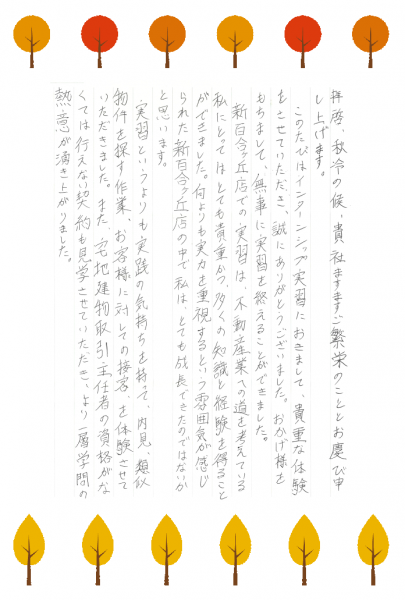 拝啓、秋冷の候、貴社ますますご繁栄のこととお慶び申
し上げます。
このたびはインターンシップ実習におきまして、貴重な体験
をさせていただき、誠にありがとうございました。おかげ様を
もちまして、無事に実習を終えることができました。
新百合ヶ丘店での実習は、不動産業への道を考えている
私にとってはとても貴重かつ、多くの知識と経験を得ること
ができました。何よりも実力を重視するという雰囲気が感じ
られた新百合ヶ丘店の中で私は、とても成長できたのではないか
と思います。
実習というよりも実践の気持ちを持て、内見、類似
物件を探す作業、お客様に対しての接客、を体験させて
いただきました。また、宅地建物取引主任者の資格がな
くては行えない契約も見学させていただき、より一層学問の
熱意が湧き上がりました。